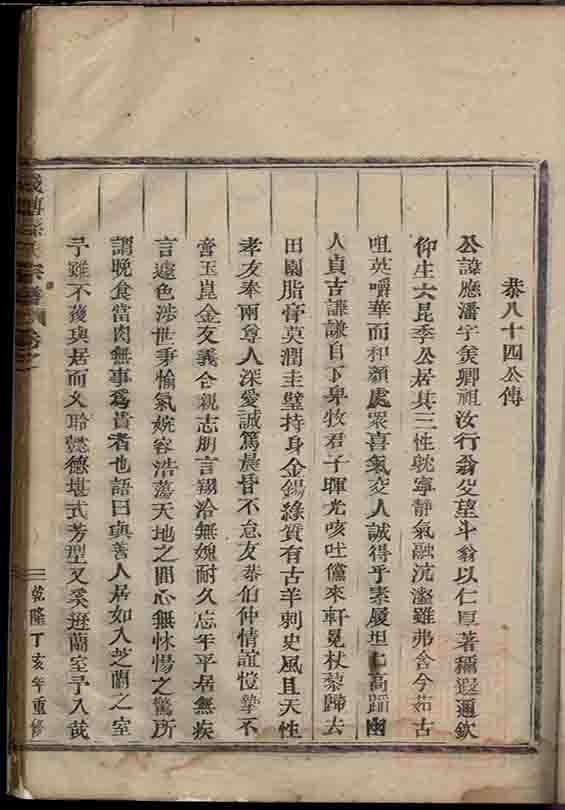 恭八十四公傳
公諱應潘字矦卿祖汝行翁父望斗翁以仁厚著稱遐邇欽
仰生六昆季公居其三性耽寧靜氣融沆瀣雖弗含今茹古
咀英嚼華而和顏處眾喜氣交人誠得乎素履坦七高蹈幽
人貞吉謙謙自下卑牧君子暉光咳吐儻來軒冕杖藜歸去
田園脂膏莫潤圭璧持身金錫緣質有古羊刺史風且天性
孝友奉兩尊人深愛誠篤晨昏不怠友恭伯仲情誼愷摯不
啻玉崑金友義仝親志朋言翔洽無媿耐久忘年平居無疾
言遽色涉世秉愉氣婉容浩蕩天地之間心無怵惕之驚所
謂晚食當肉無事為貴者也語曰與善人居如入芝蘭之室
予雖不獲與居而久聆懿德堪式芳型又奚遜蘭室予入哉
宗譜
乾隆丁亥年重修